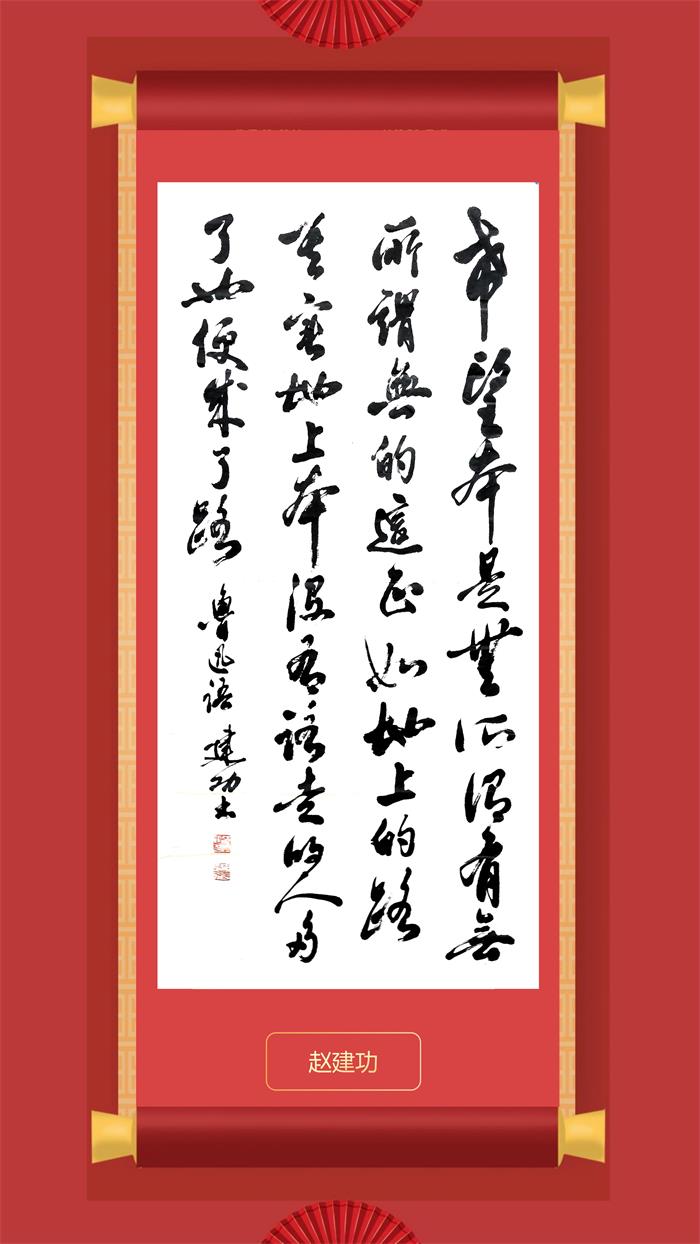 希望本是無所謂有無
所謂無的這正如地上的路
其實地上本没有路走的人多
了也便成了路 魯迅語 建功书
赵建功